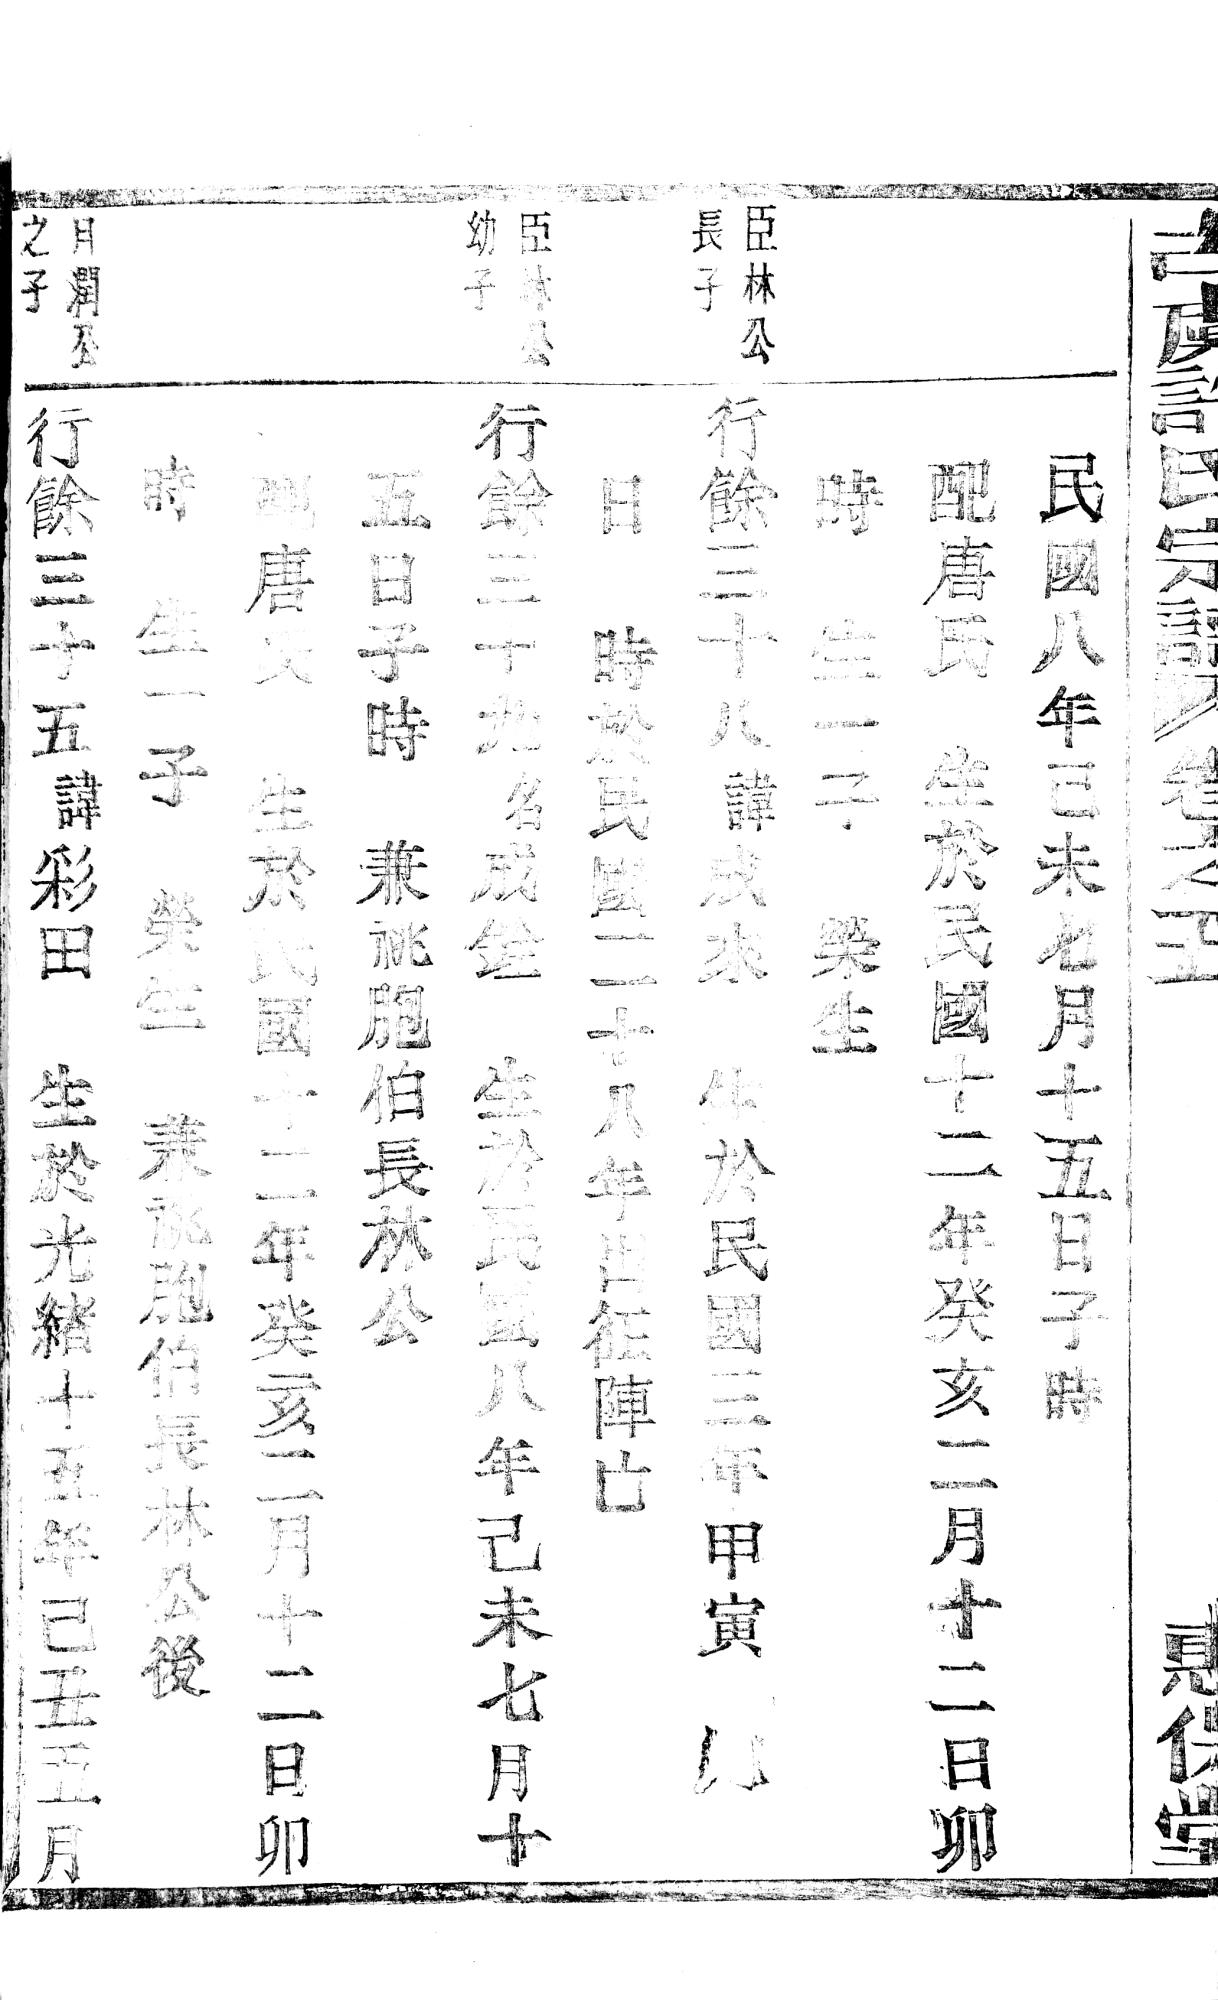 許氏宗譜 卷之五
惠保堂
民國八年己未七月十五日子時
配唐氏 生於民國十二年癸亥二月十二日卯
時 生二子 榮生
臣林公
長子
行餘三十八諱成來 生於民國三年甲寅 月
日 時於民國二十八年出征陣亡
臣林公
幼子
行餘三十九名成銓 生於民國八年己未七月十
五日子時 兼祧胞伯長林公
配唐氏 生於民國十二年癸亥二月十二日卯
時 生一子 榮生 兼祧胞伯長林公後
月潤公
之子
行餘三十五諱彩田 生於光緒十五年己丑五月